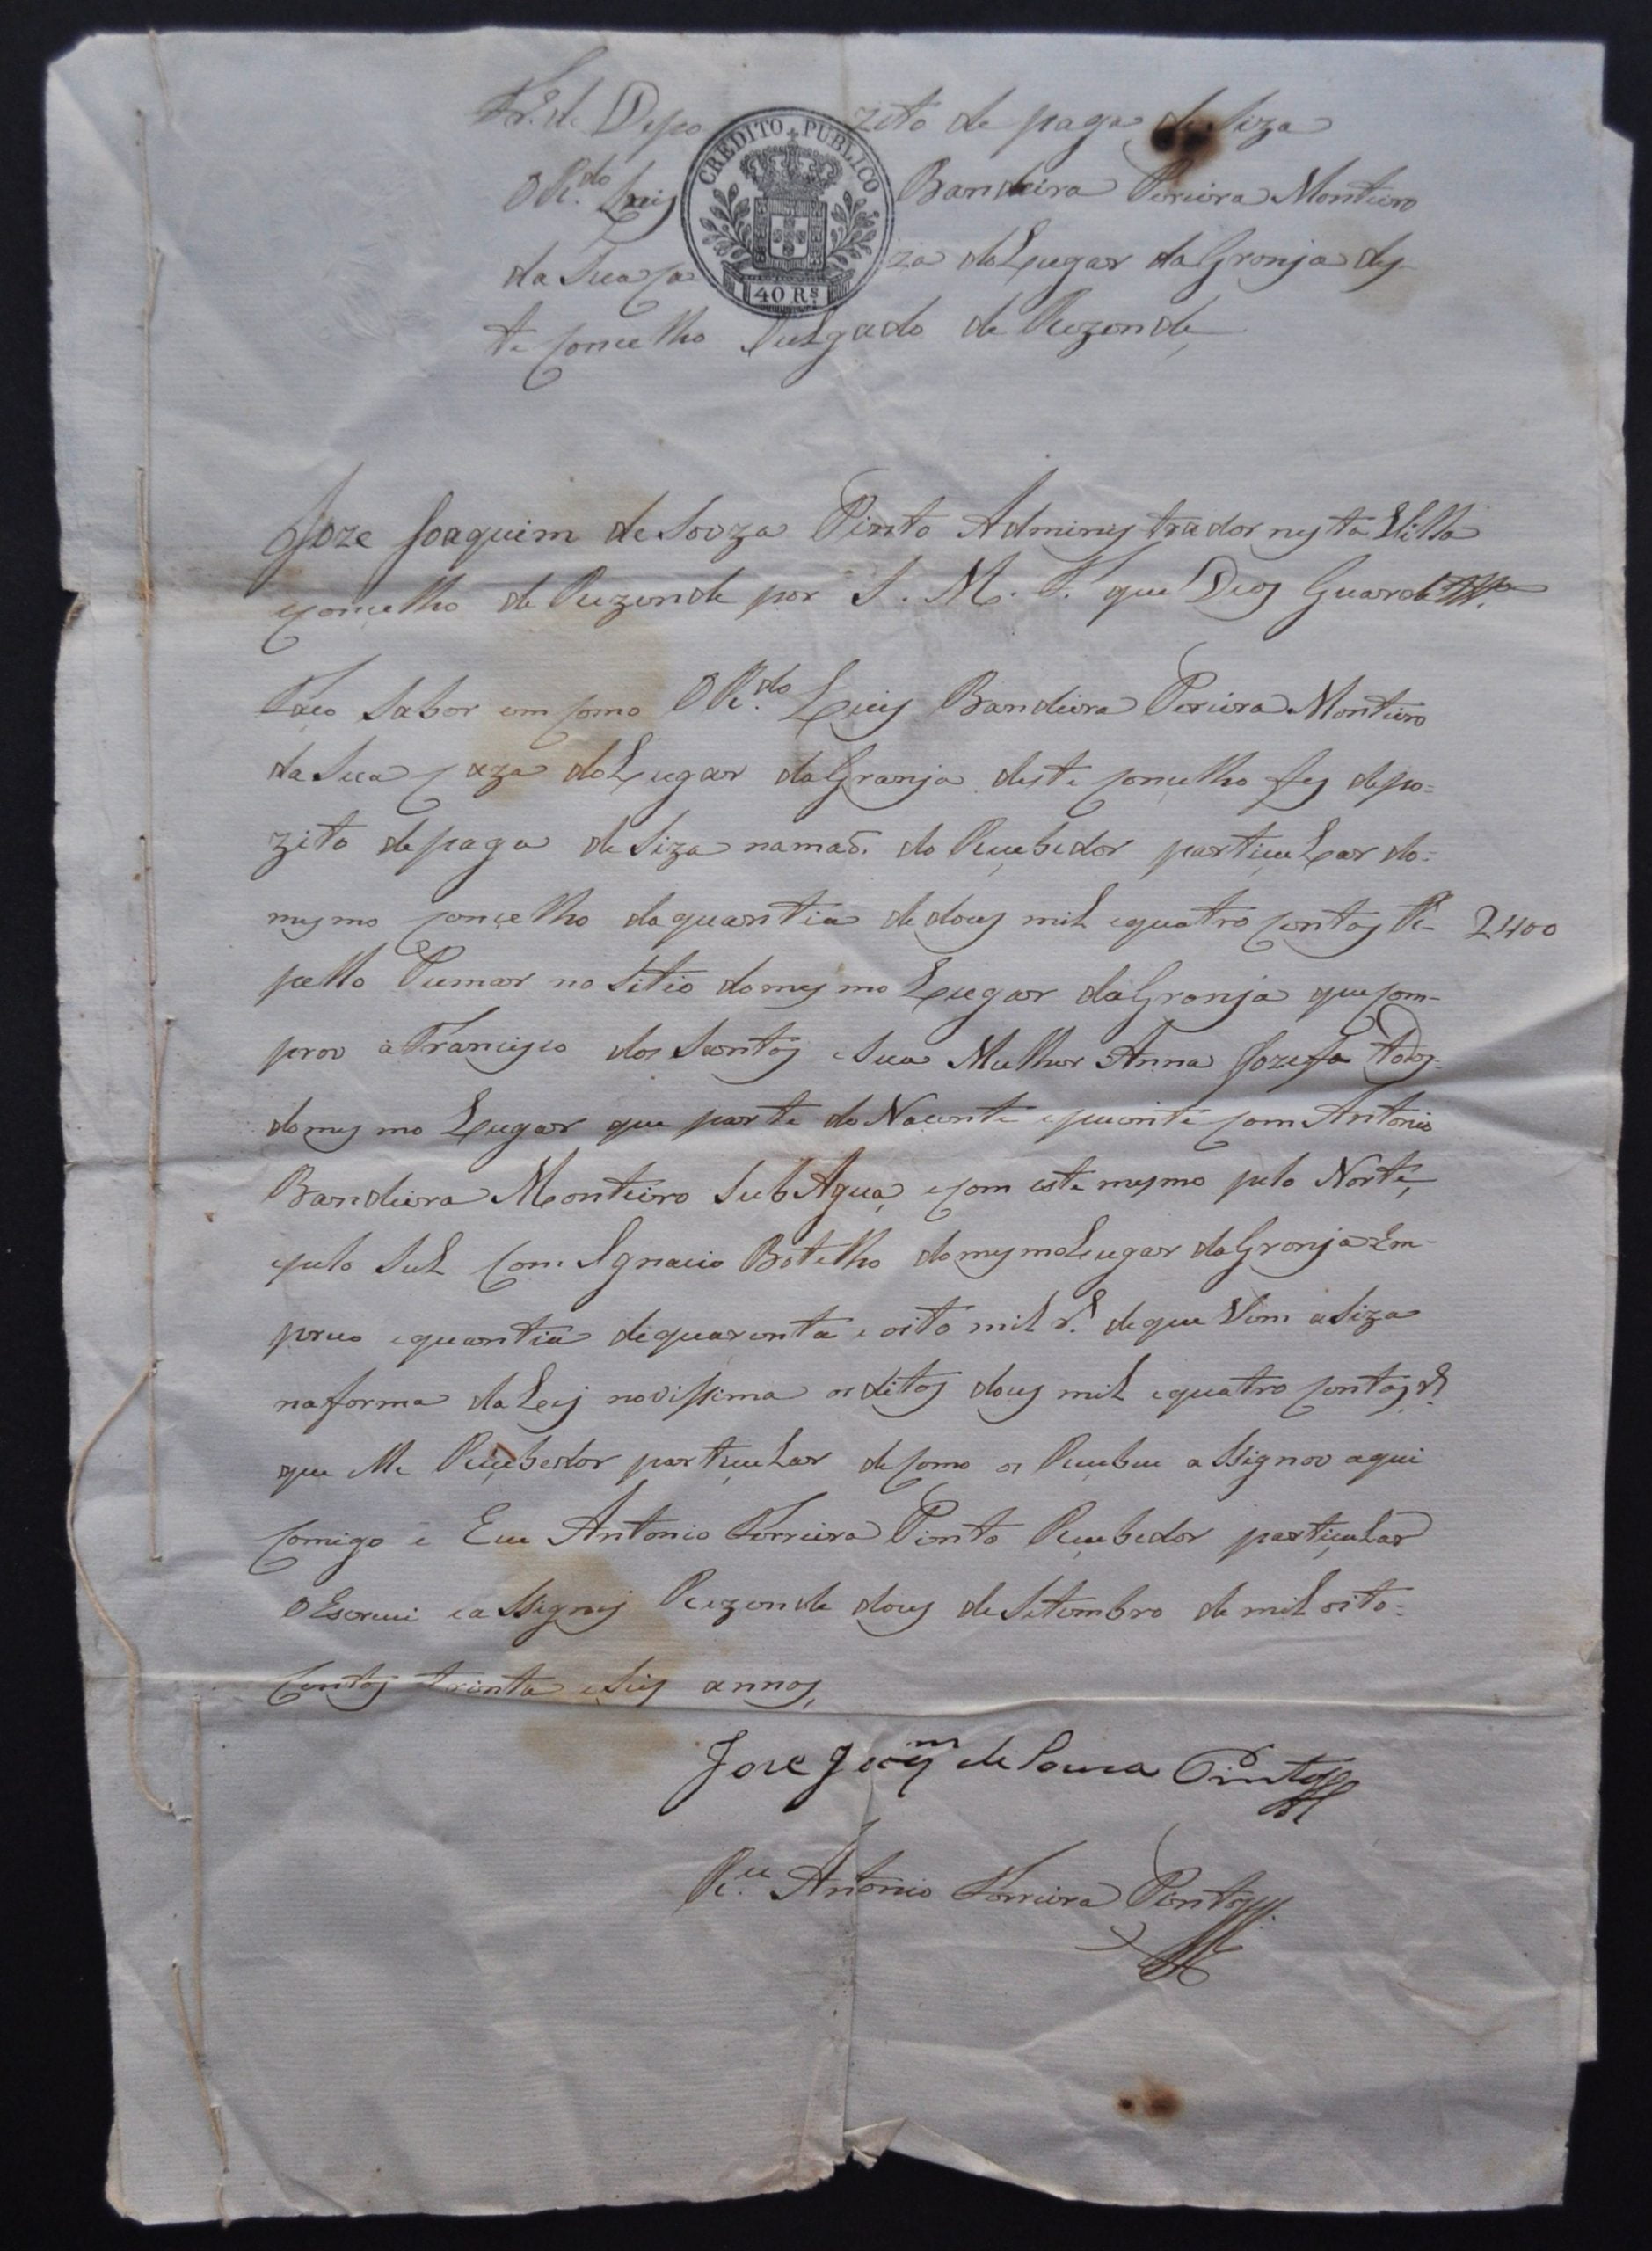 de Depo zito de paga de Siza
CREDITO PUBLICO
40 RS.
O R.do Luis Bandeira Pereira Monteiro
da Sua ca za do Lugar da Granja des-
te concelho Julgado de Rezende
Joze Joaquim de Souza Pinto Adminystrador nysta Villa
e concelho de Rezende por S. M. F. que Deos Guarde
Faco Saber em como O R.do Luis Bandeira Pereira Monteiro
da Sua caza do Lugar da Granja deste concelho fes depo=
zito de paga de Siza na maõ do Recebedor particular do=
mesmo concelho da quantia de dous mil e quatro centos R.- 2400
pello Pumar no Sitio do mesmo Lugar da Granja que com-
prou a Francisco dos Santos e Sua Mulher Anna Jozefa Todos=
do mesmo Lugar que parte do Nacente e puente com Antonio
Bandeira Monteiro Sub Agua, e com este mesmo pelo Norte,
e pulo Sul com Ignacio Botelho do mesmo Lugar da Granja Em-
preco e quantia de quarenta e oito mil r.s de que Vem a Siza
na forma da Ley novissima os ditos dous mil e quatro centos r.s
que Elle Recebedor particular de como os Recebeu assignou aqui
comigo e Eu Antonio Ferreira Pinto Recebedor particular
O Escrevi e assigney Rezende dous de Setembro de mil oito=
centos trinta e Seis annos,
Joze Joaq.m de Souza Pinto
Antonio Ferreira Pinto